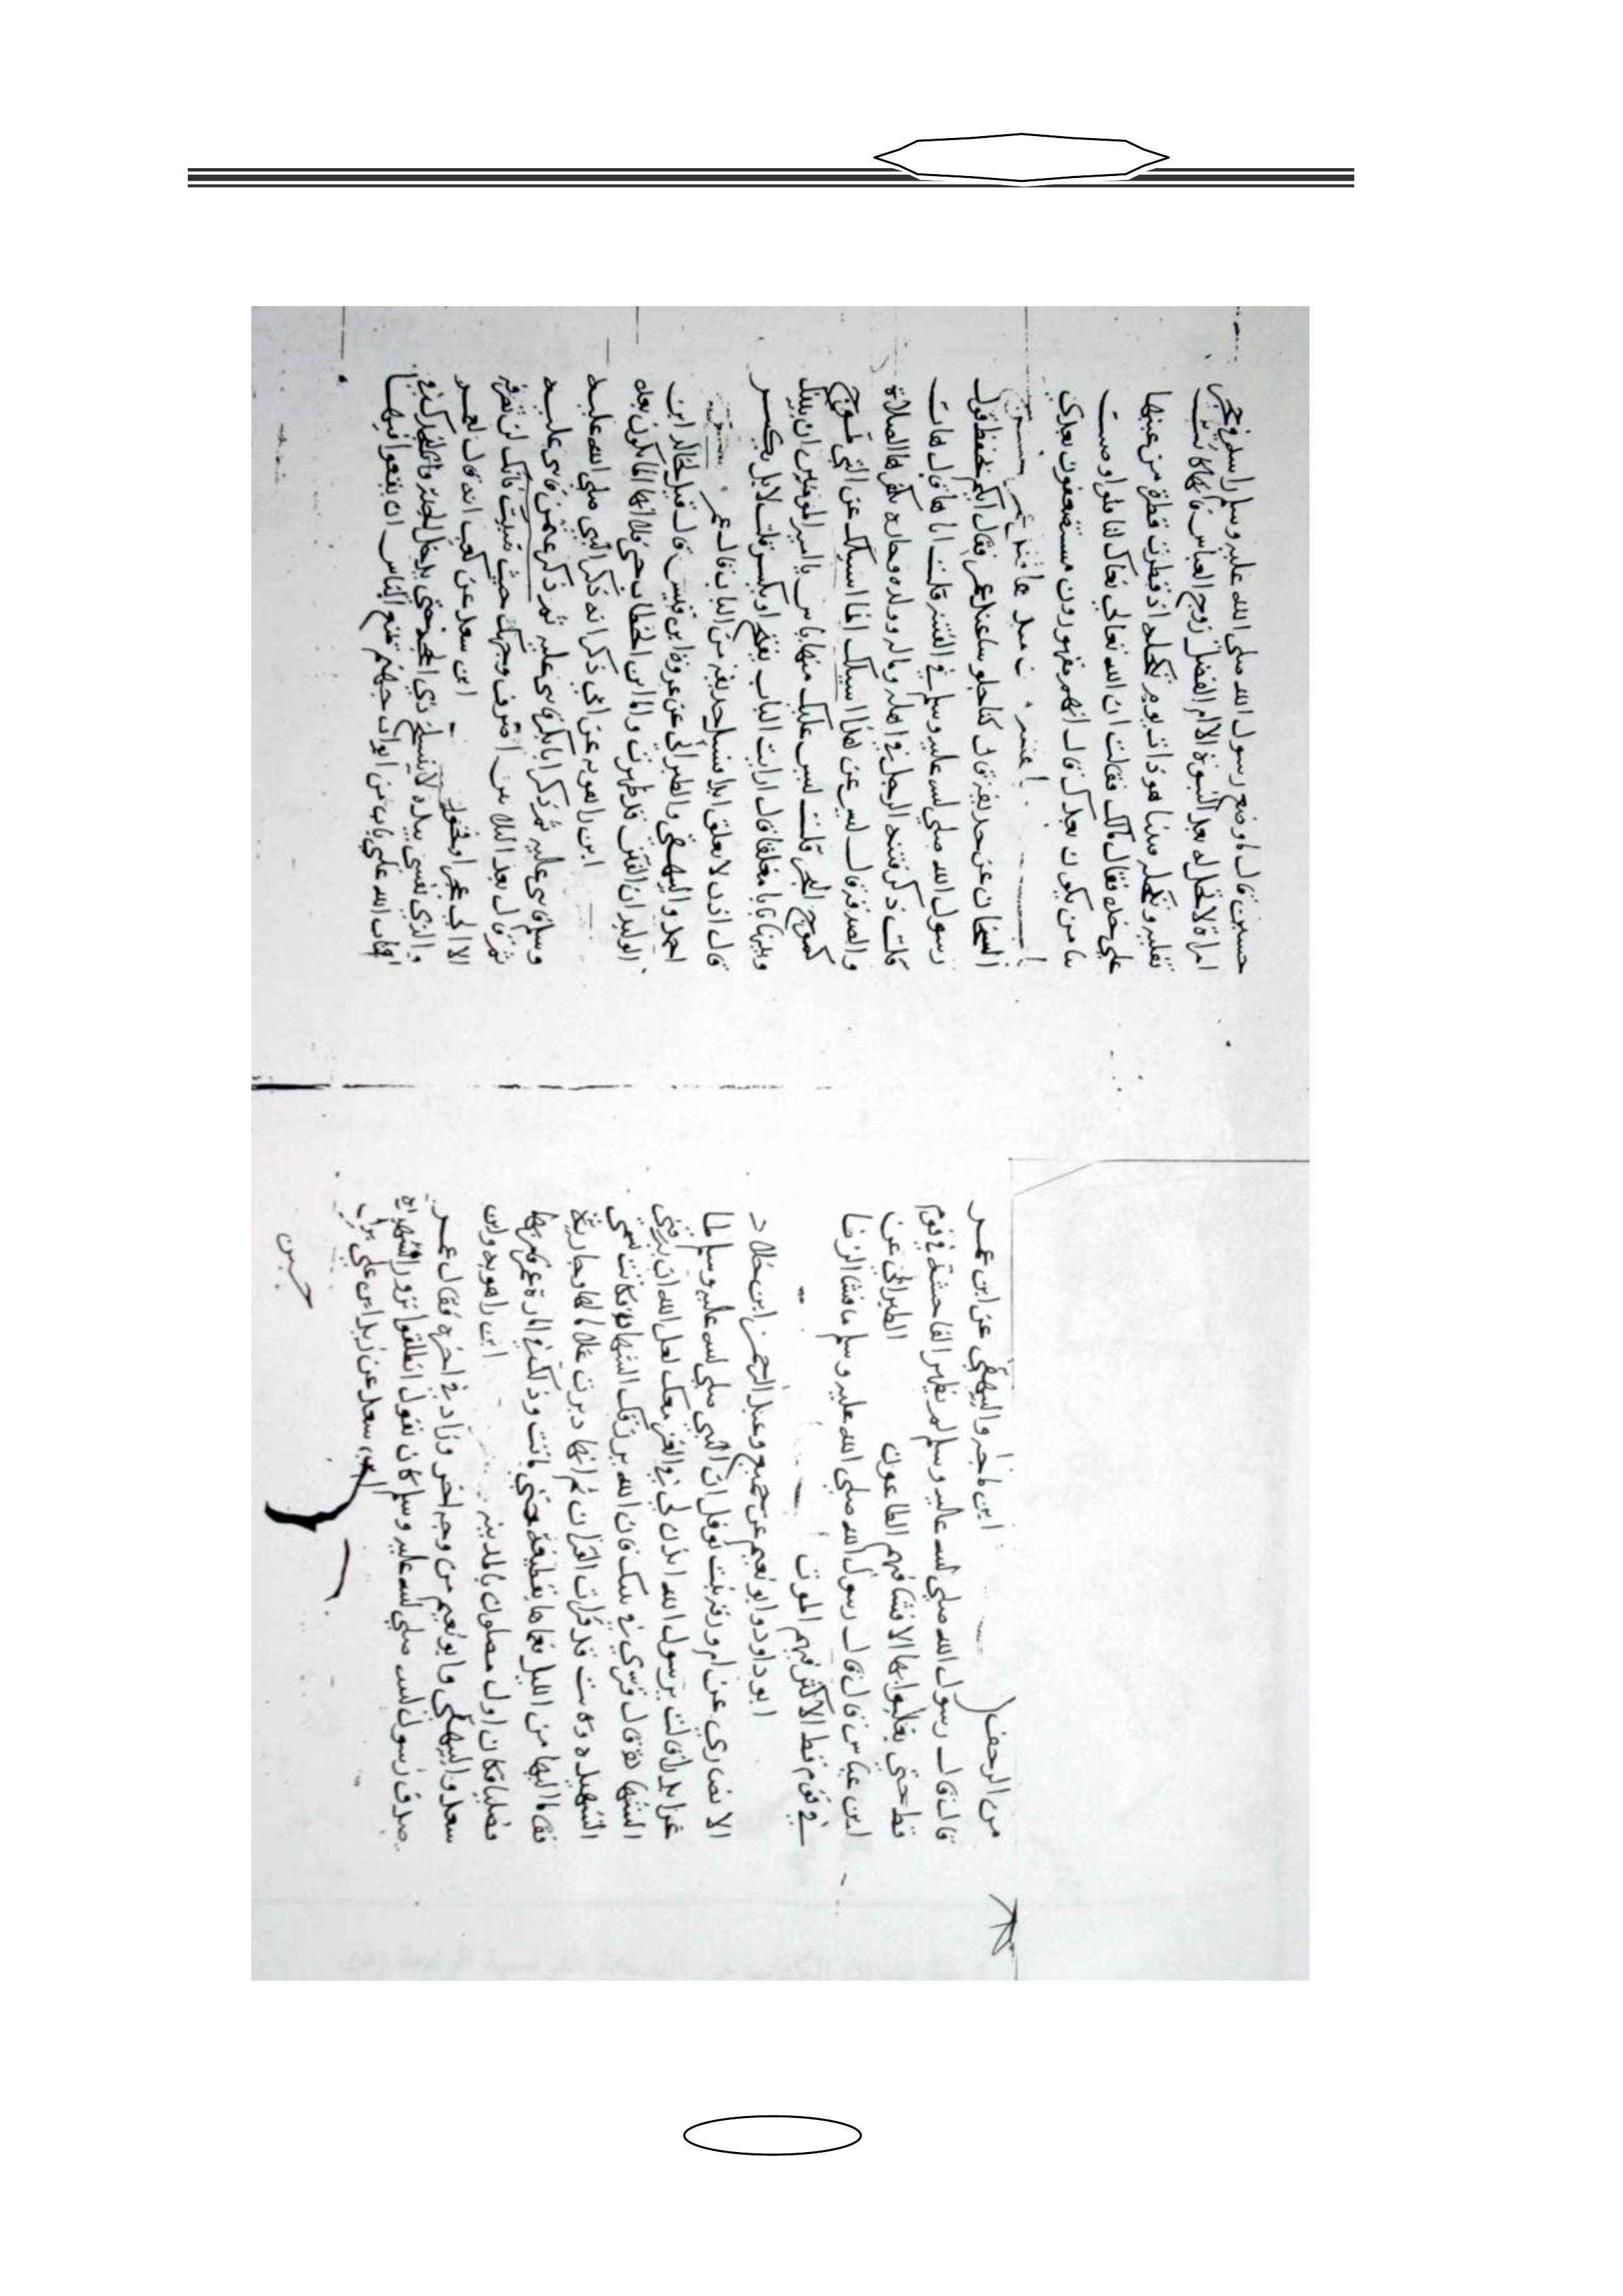 من الزحف ( ابن ماجه والبيهقي عن ابن عمر
قال قال رسول الله صلى الله عليه وسلم لم تظهر الفاحشة في قوم
قط حتي يعلنوا بها الا فشا فيهم الطاعون الطبراني عن
ابن عباس قال قال رسول الله صلي الله عليه وسلم ما فشا الزنا
في قوم قط الا كثر فيهم الموت
ابو داود وابو نعيم عن جميع وعبد الرحمن ابن خلاد
الانصاري عن ام ورقة بنت نوفل ان النبي صلي الله عليه وسلم لما
غزا بدرا قالت يرسول الله ايذن لي في الغزو معك لعل الله ان يرزقني
الشهادة قال قري في بيتك فان الله يرزقك الشهادة فكانت تسمي
الشهيدة وكانت قد قرات القران ثم انها دبرت غلاما لها وجارية
فقاما اليها من الليل فغماها بقطيفة حتي ماتت وذلك في امارة عمر فامر بهما
فصلبا فكانا اول مصلوب بالمدينة ابن راهويه وابن
سعد والبيهقي وابو نعيم من وجه اخر وزاد في اخره فقال عمر
صدق رسول الله صلي الله عليه وسلم كان يقول انطلقوا نزور الشهيدة
ابن سعد عن زيد ابن علي بن
حسين
حسين قال ما وضع رسول الله صلى الله عليه وسلم راسه في حجر
امراة لا تحل له بعد النبوة الا ام الفضل زوج العباس فانها كانت
تفليه وتكحله فبينا هو ذات يوم تكحله اذ قطرت قطرة من عينها
علي خده فقال مالك فقالت ان الله تعالي نعاك لنا فلو اوصيت
بنا من يكون بعدك قال انهم مقهورون مستضعفون بعدي
الشيخان عن حذيفة قال كنا جلوسا عند عمر فقال ايكم يحفظ قول
رسول الله صلي الله عليه وسلم في الفتنة قلت انا قال هات
قلت ذكر فتنة الرجل في اهله وماله وولده وجاره يكفرها الصلاة
والصدقة قال ليس عن هذا اسيلك انما اسيلك عن التي تموج
كموج البحر قلت ليس عليك منها باس يا امير المومنين ان بينك
وبينها بابا مغلقا قال ارايت الباب يفتح او يكسر قلت لا بل يكسر
قال اذن لا يغلق ابدا فسئل حذيفة من الباب قال عمر
احمد والبيهقي والطبراني عن عروة ابن قيس قال قيل لخالد ابن
الوليد ان الفتن قد ظهرت قال اما وابن الخطاب حي فلا انها انما تكون بعده
ابن راهويه عن ابي ذكر انه ذكر النبي صلي الله عليه
وسلم فاثني عليه ثم ذكر ابا بكر فاثني عليه ثم ذكر عمر فاثني عليه
ابن سعد عن كعب انه قال لعمر
والذي نفسي بيده لا ينسلخ ذي الحجة حتي يدخل الجنة
ابواب جهنم تمنع الناس ان يقعوا فيها